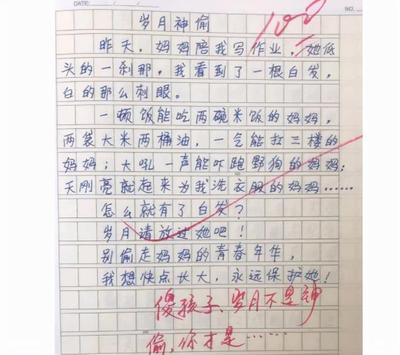 DATE:
NO.
100
岁月神偷
昨天，妈妈陪我写作业，她低
头的一刹那，我看到了一根白发，
白的那么刺眼。
一顿饭能吃两碗米饭的妈妈，
两袋大米两桶油，一气能扛三楼的
妈妈；大吼一声能吓跑野狗的妈妈；
天刚亮就起来为我洗衣服的妈妈……
怎么就有了白发？
岁月请放过她吧！
别偷走妈妈的青春年华，
我想快点长大，永远保护她！
傻孩子、岁月不是神
偷，你才是……